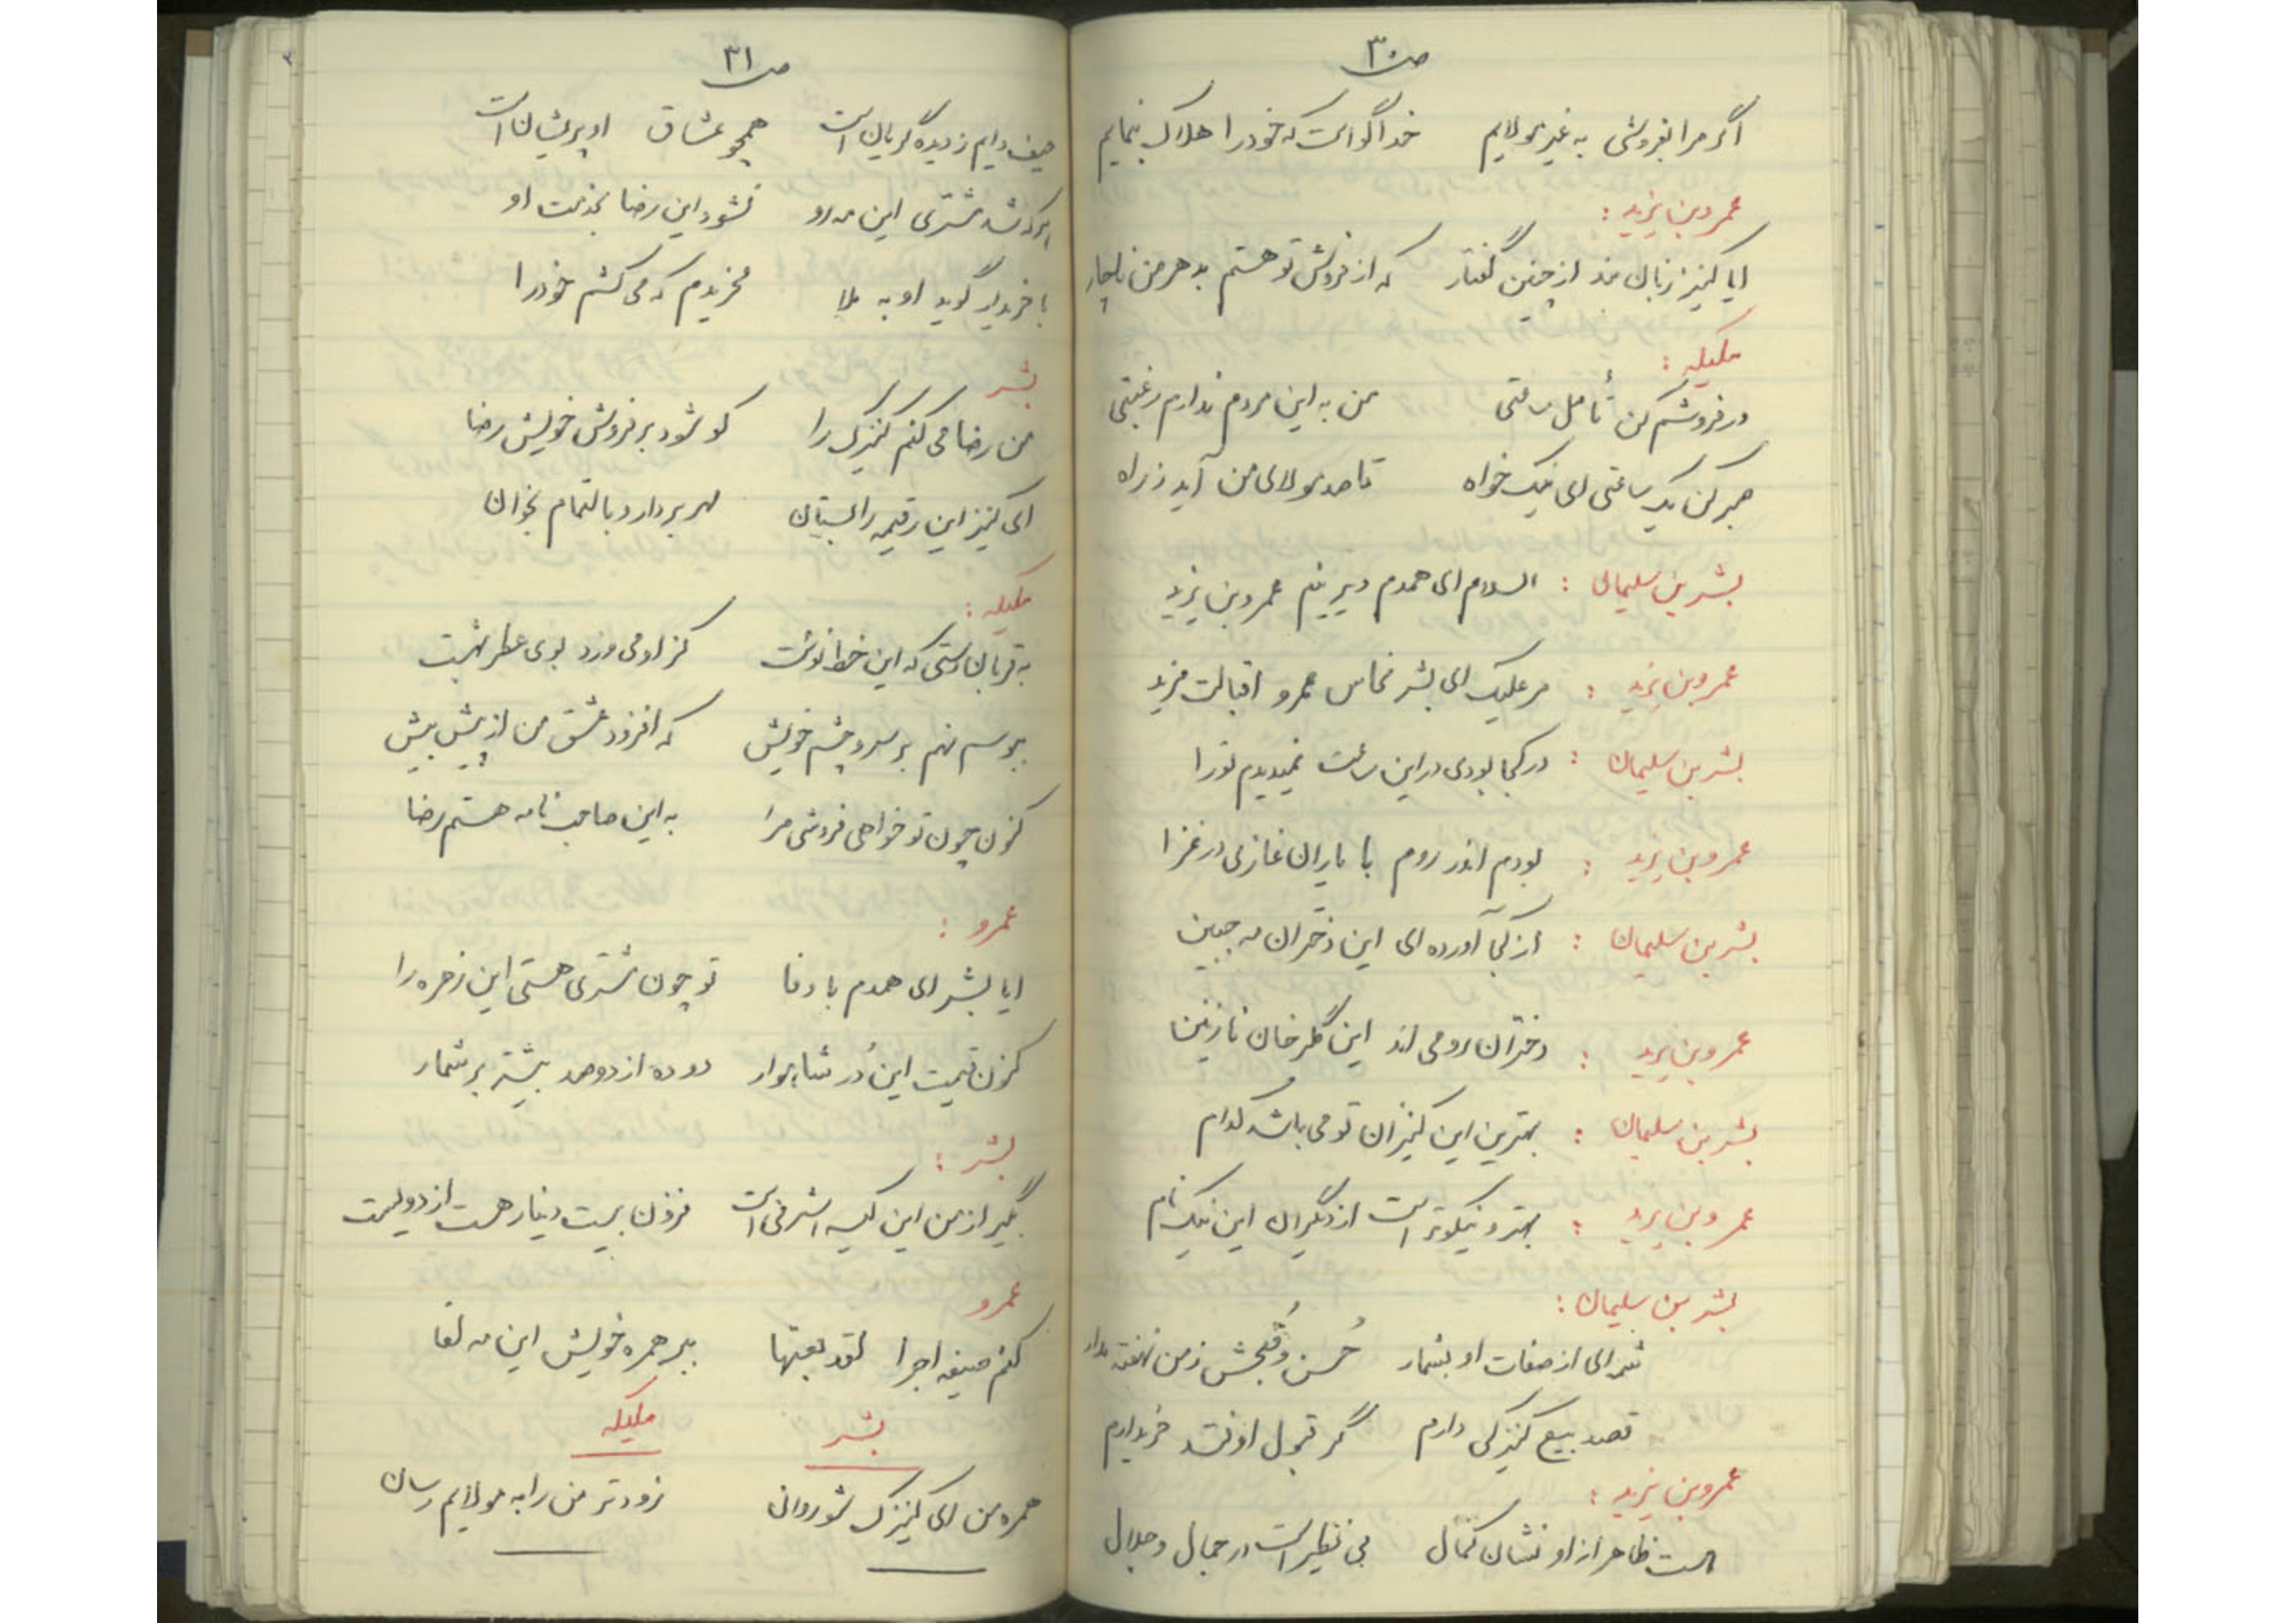 ص ۳۰
اگر مرا بفروشی به غیر مولایم خدا گواست که خود را هلاک بنمایم
عمروبن یزید :
ایا کنیز زبان بند از چنین گفتار که از فروش تو هستم بدهر من ناچار
ملیکه :
در فروشم کن تأمل ساعتی من به این مردم ندارم رغبتی
صبر کن یک ساعتی ای نیک خواه تا صد مولای من آید ز راه
بشر بن سلیمان : السلام ای همدم دیرینم عمروبن یزید
عمروبن یزید : مر علیک ای بشر نخاس عمرو اقبالت مزید
بشر بن سلیمان : در کجا بودی در این ساعت نمیدیدم تو را
عمروبن یزید : بودم اندر روم با یاران غازی در غزا
بشر بن سلیمان : از کجا آورده ای این دختران مه جبین
عمروبن یزید : دختران رومی اند این گلرخان نازنین
بشر بن سلیمان : بهترین این کنیزان تو می باشد کدام
عمروبن یزید : بهتر و نیکوتر است از دیگران این نیک نام
بشر بن سلیمان :
شمه ای از صفات او بشمار حُسن و قُبحش ز من نهفته مدار
قصد بیع کنیزکی دارم گر قبول اوفتد خریدارم
عمروبن یزید :
هست ظاهر از او نشان کمال بی نظیر است در جمال و جلال
ص ۳۱
حیف دایم ز دیده گریان است همچو عشاق او پریشان است
هرکه شد مشتری این مه رو نشود این رضا بخدمت او
با خریدار گوید او به ملا مخریدم که می کشم خود را
بشر
من رضا می کنم کنیزک را کو شود بر فروش خویش رضا
ای کنیز این رقیمه را بستان مهر بردار و بالتمام بخوان
ملیکه :
به قربان دستی که این خط نوشت کز او می وزد بوی عطر بهشت
ببوسم نهم بر سر و چشم خویش که افزود عشق من از پیش بیش
کنون چون تو خواهی فروشی مرا به این صاحب نامه هستم رضا
عمرو :
ایا بشر ای همدم با وفا تو چون مشتری هستی این زهره را
کنون قیمت این دُر شاهوار دو ده از دو صد بیشتر بر شمار
بشر :
بگیر از من این کیسه اشرفی است فزون بیست دینار هست از دویست
عمرو
کنم صیغه اجرا لقد بعتها ببر همره خویش این مه لقا
بشر ملیکه
همره من ای کنیزک شو روان زودتر من را به مولایم رسان